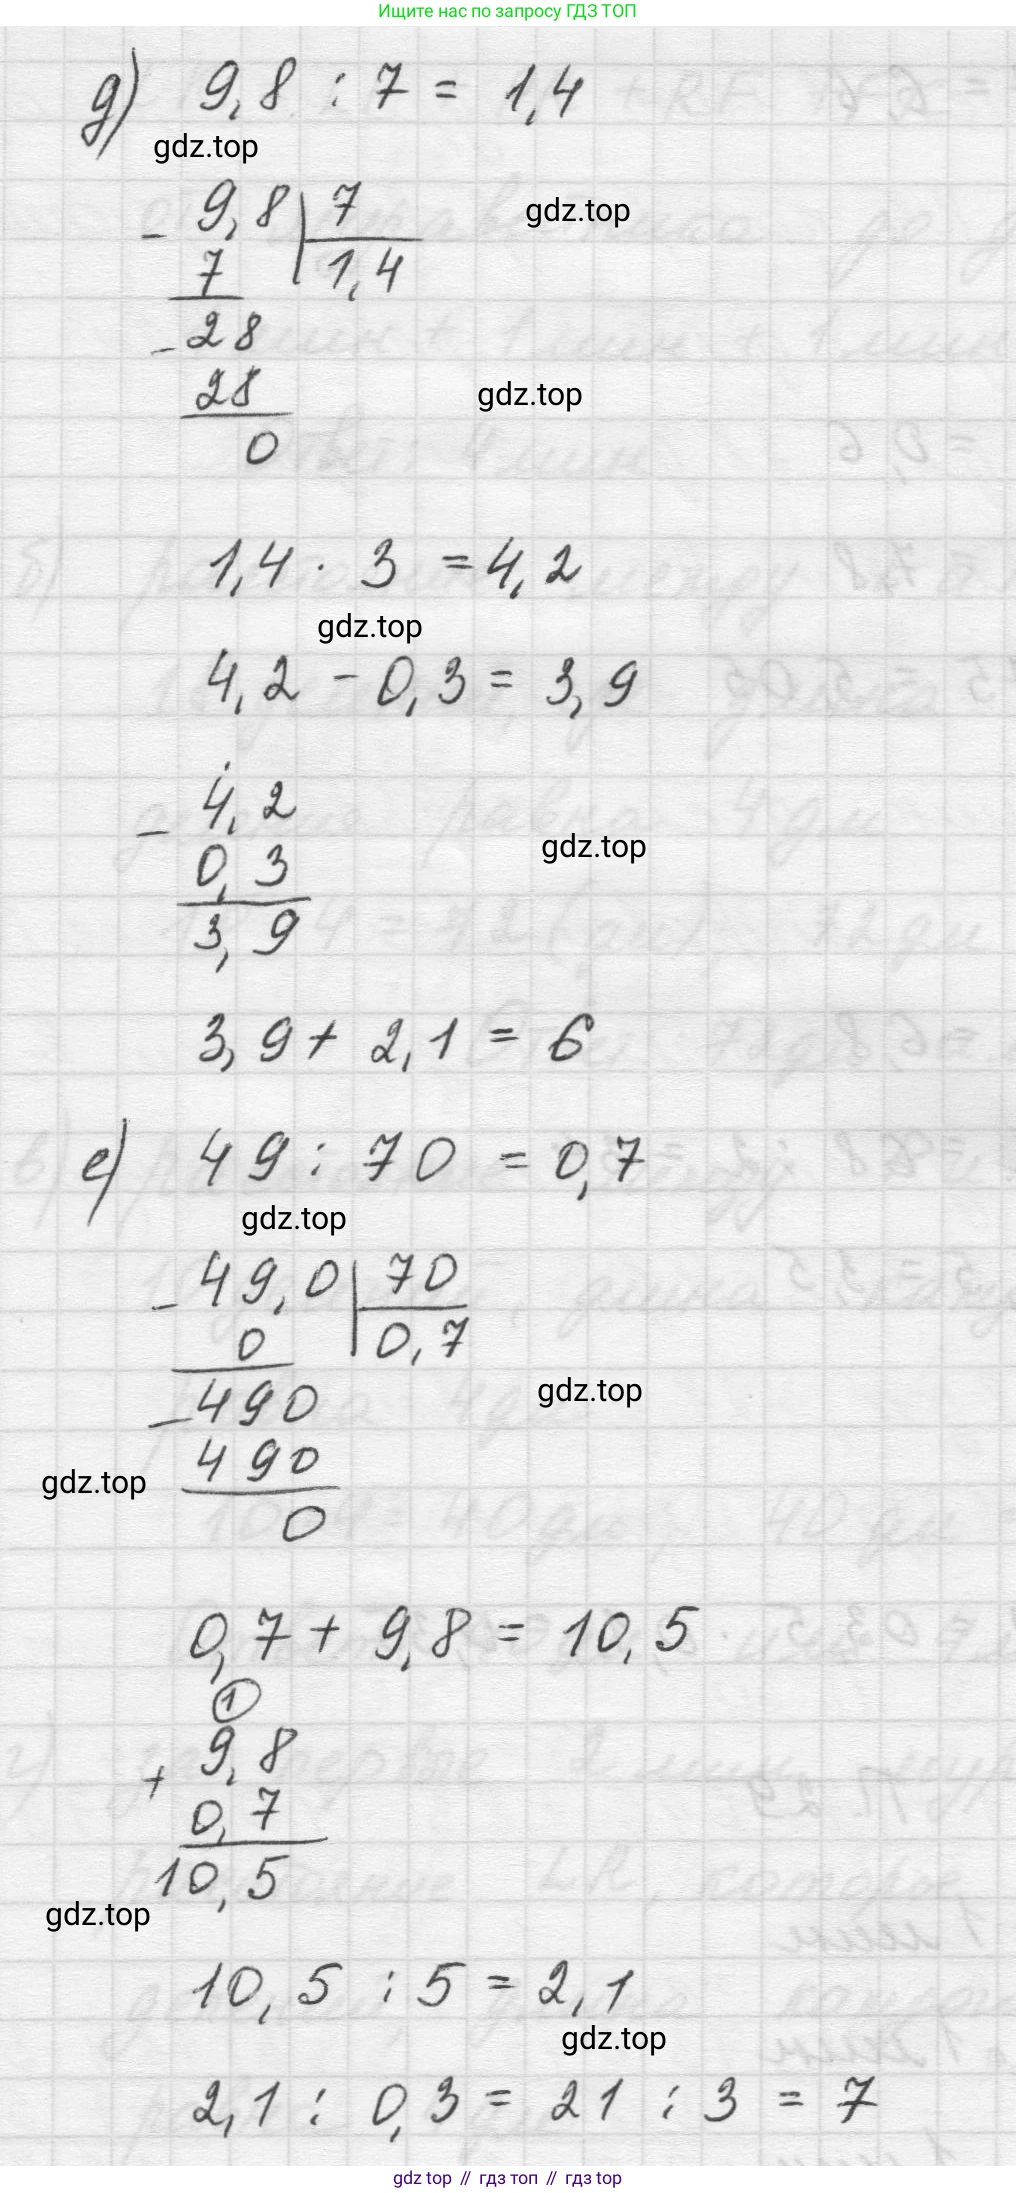 Ищите нас по запросу ГДЗ ТОП
д) 9,8 : 7 = 1,4
gdz.top
- 9,8 | 7
gdz.top
7 1,4
- 28
28
gdz.top
0
1,4 · 3 = 4,2
gdz.top
4,2 - 0,3 = 3,9
- 4,2
gdz.top
0,3
3,9
3,9 + 2,1 = 6
е) 49 : 70 = 0,7
gdz.top
- 49,0 | 70
0 0,7
gdz.top
- 490
490
gdz.top
0
0,7 + 9,8 = 10,5
1
9,8
+
0,7
10,5
gdz.top
10,5 : 5 = 2,1
gdz.top
2,1 : 0,3 = 21 : 3 = 7
gdz top // гдз топ // gdz top